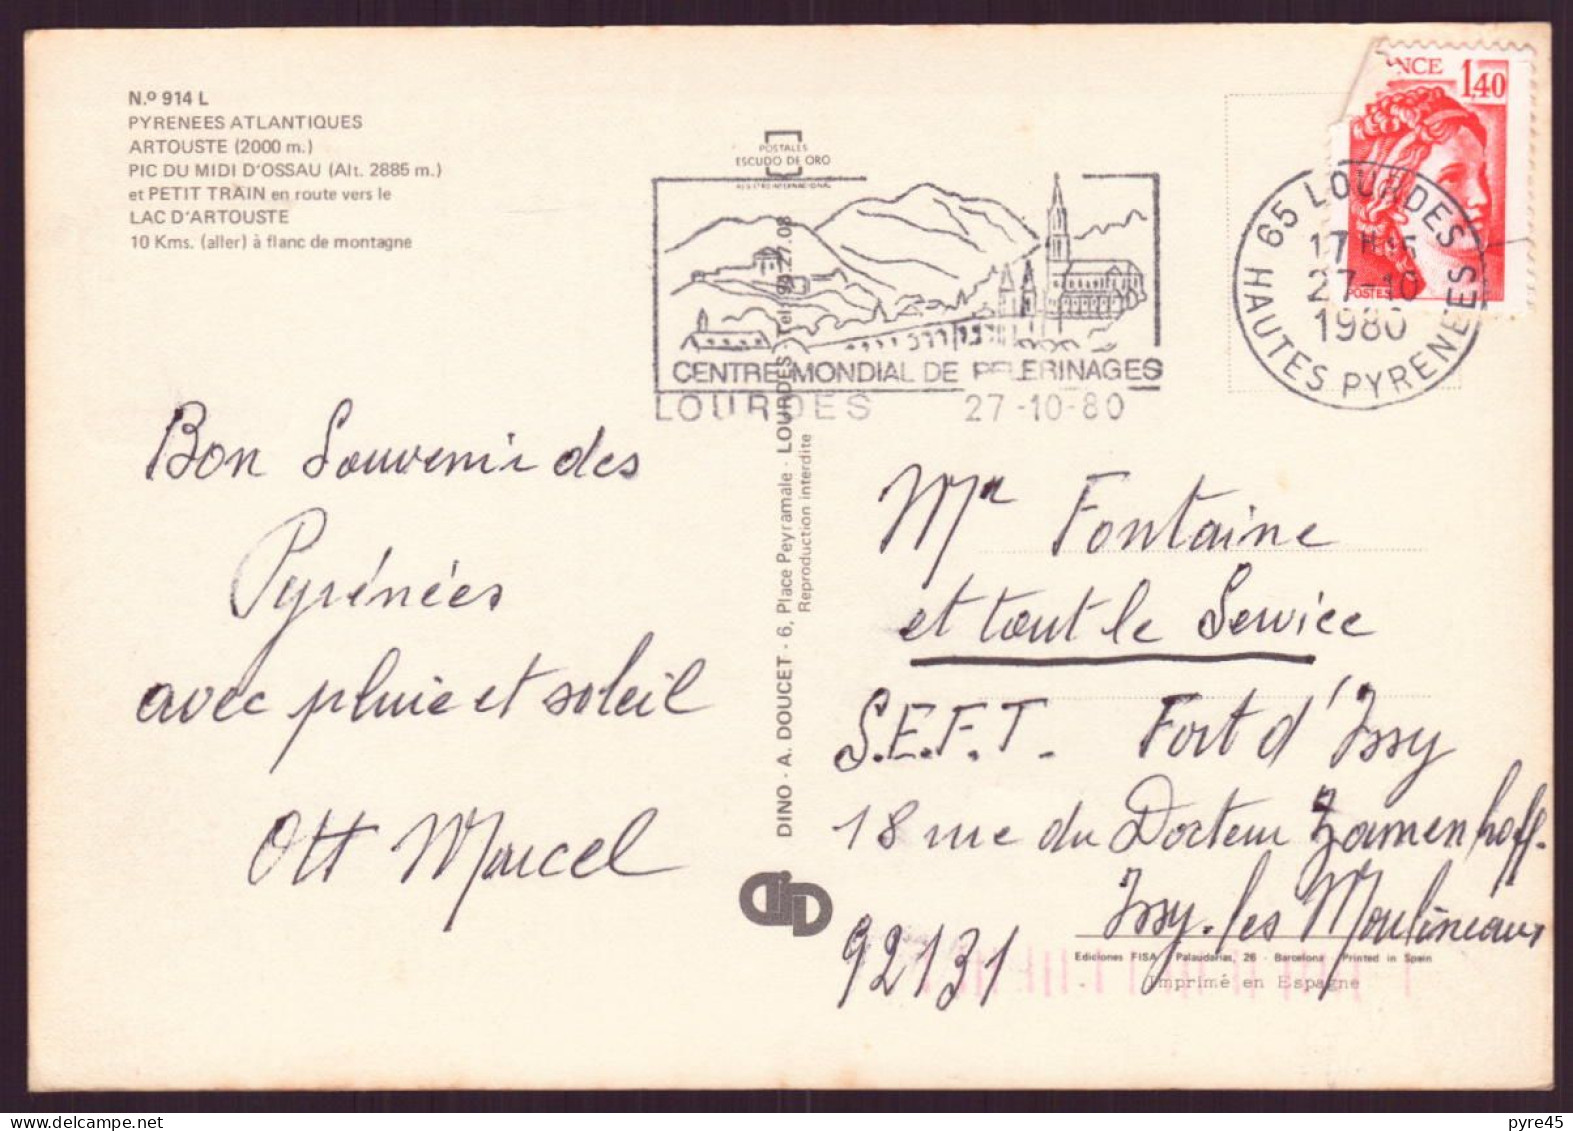 N.º 914 L
PYRENEES ATLANTIQUES
ARTOUSTE (2000 m.)
PIC DU MIDI D'OSSAU (Alt. 2885 m.)
et PETIT TRAIN en route vers le
LAC D'ARTOUSTE
10 Kms. (aller) à flanc de montagne
POSTALES
ESCUDO DE ORO
REGISTRO INTERNACIONAL
CENTRE MONDIAL DE PELERINAGES
LOURDES 27-10-80
NCE 1,40
POSTES
65 LOURDES
17H
27-10
1980
HAUTES PYRENEES
Bon Souvenir des
Pyrénées
avec pluie et soleil
Ott Marcel
DINO - A. DOUCET - 6, Place Peyramale - LOURDES - Tel. 94.27.08
Reproduction interdite
Mr Fontaine
et tout le Service
S.E.F.T. Fort d'Issy
18 rue du Docteur Zamenhoff.
Issy-les Moulineaux
92131
Ediciones FISA - Palaudarias, 26 - Barcelona - Printed in Spain
Imprimé en Espagne
delcampe.net
pyre45